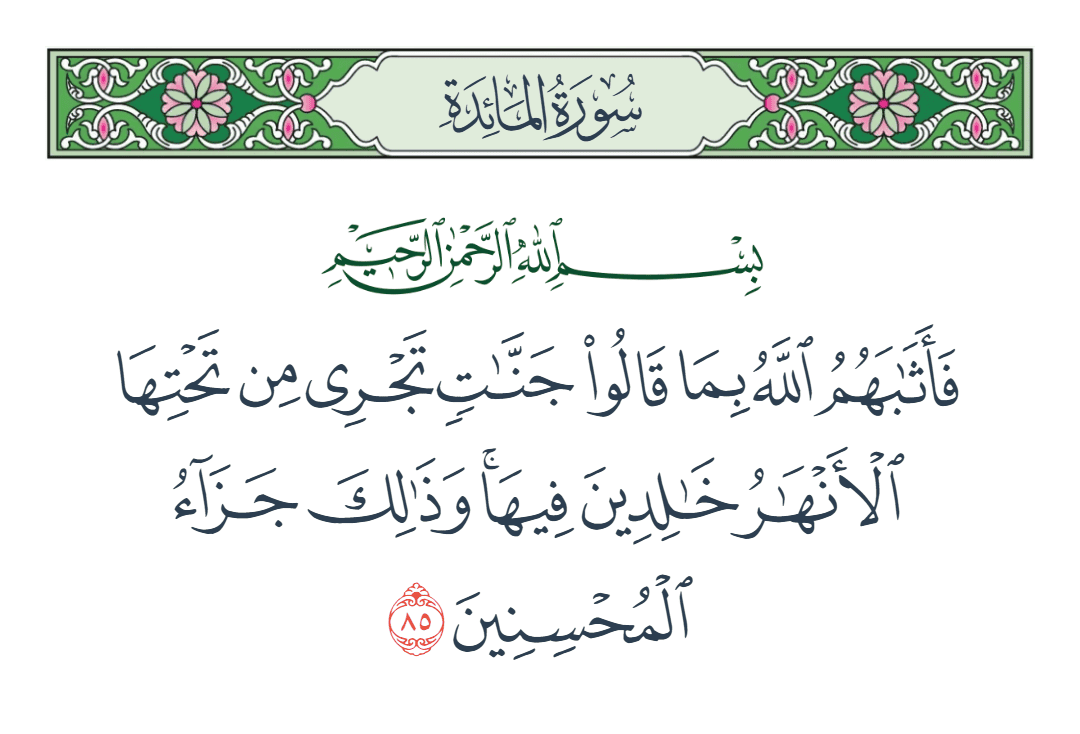 سُورَةُ المَائِدَةِ
بِسْمِ ٱللَّهِ ٱلرَّحْمَٰنِ ٱلرَّحِيمِ
فَأَثَٰبَهُمُ ٱللَّهُ بِمَا قَالُوا۟ جَنَّٰتٍ تَجْرِى مِن تَحْتِهَا
ٱلْأَنْهَٰرُ خَٰلِدِينَ فِيهَا ۚ وَذَٰلِكَ جَزَآءُ
ٱلْمُحْسِنِينَ ٨٥